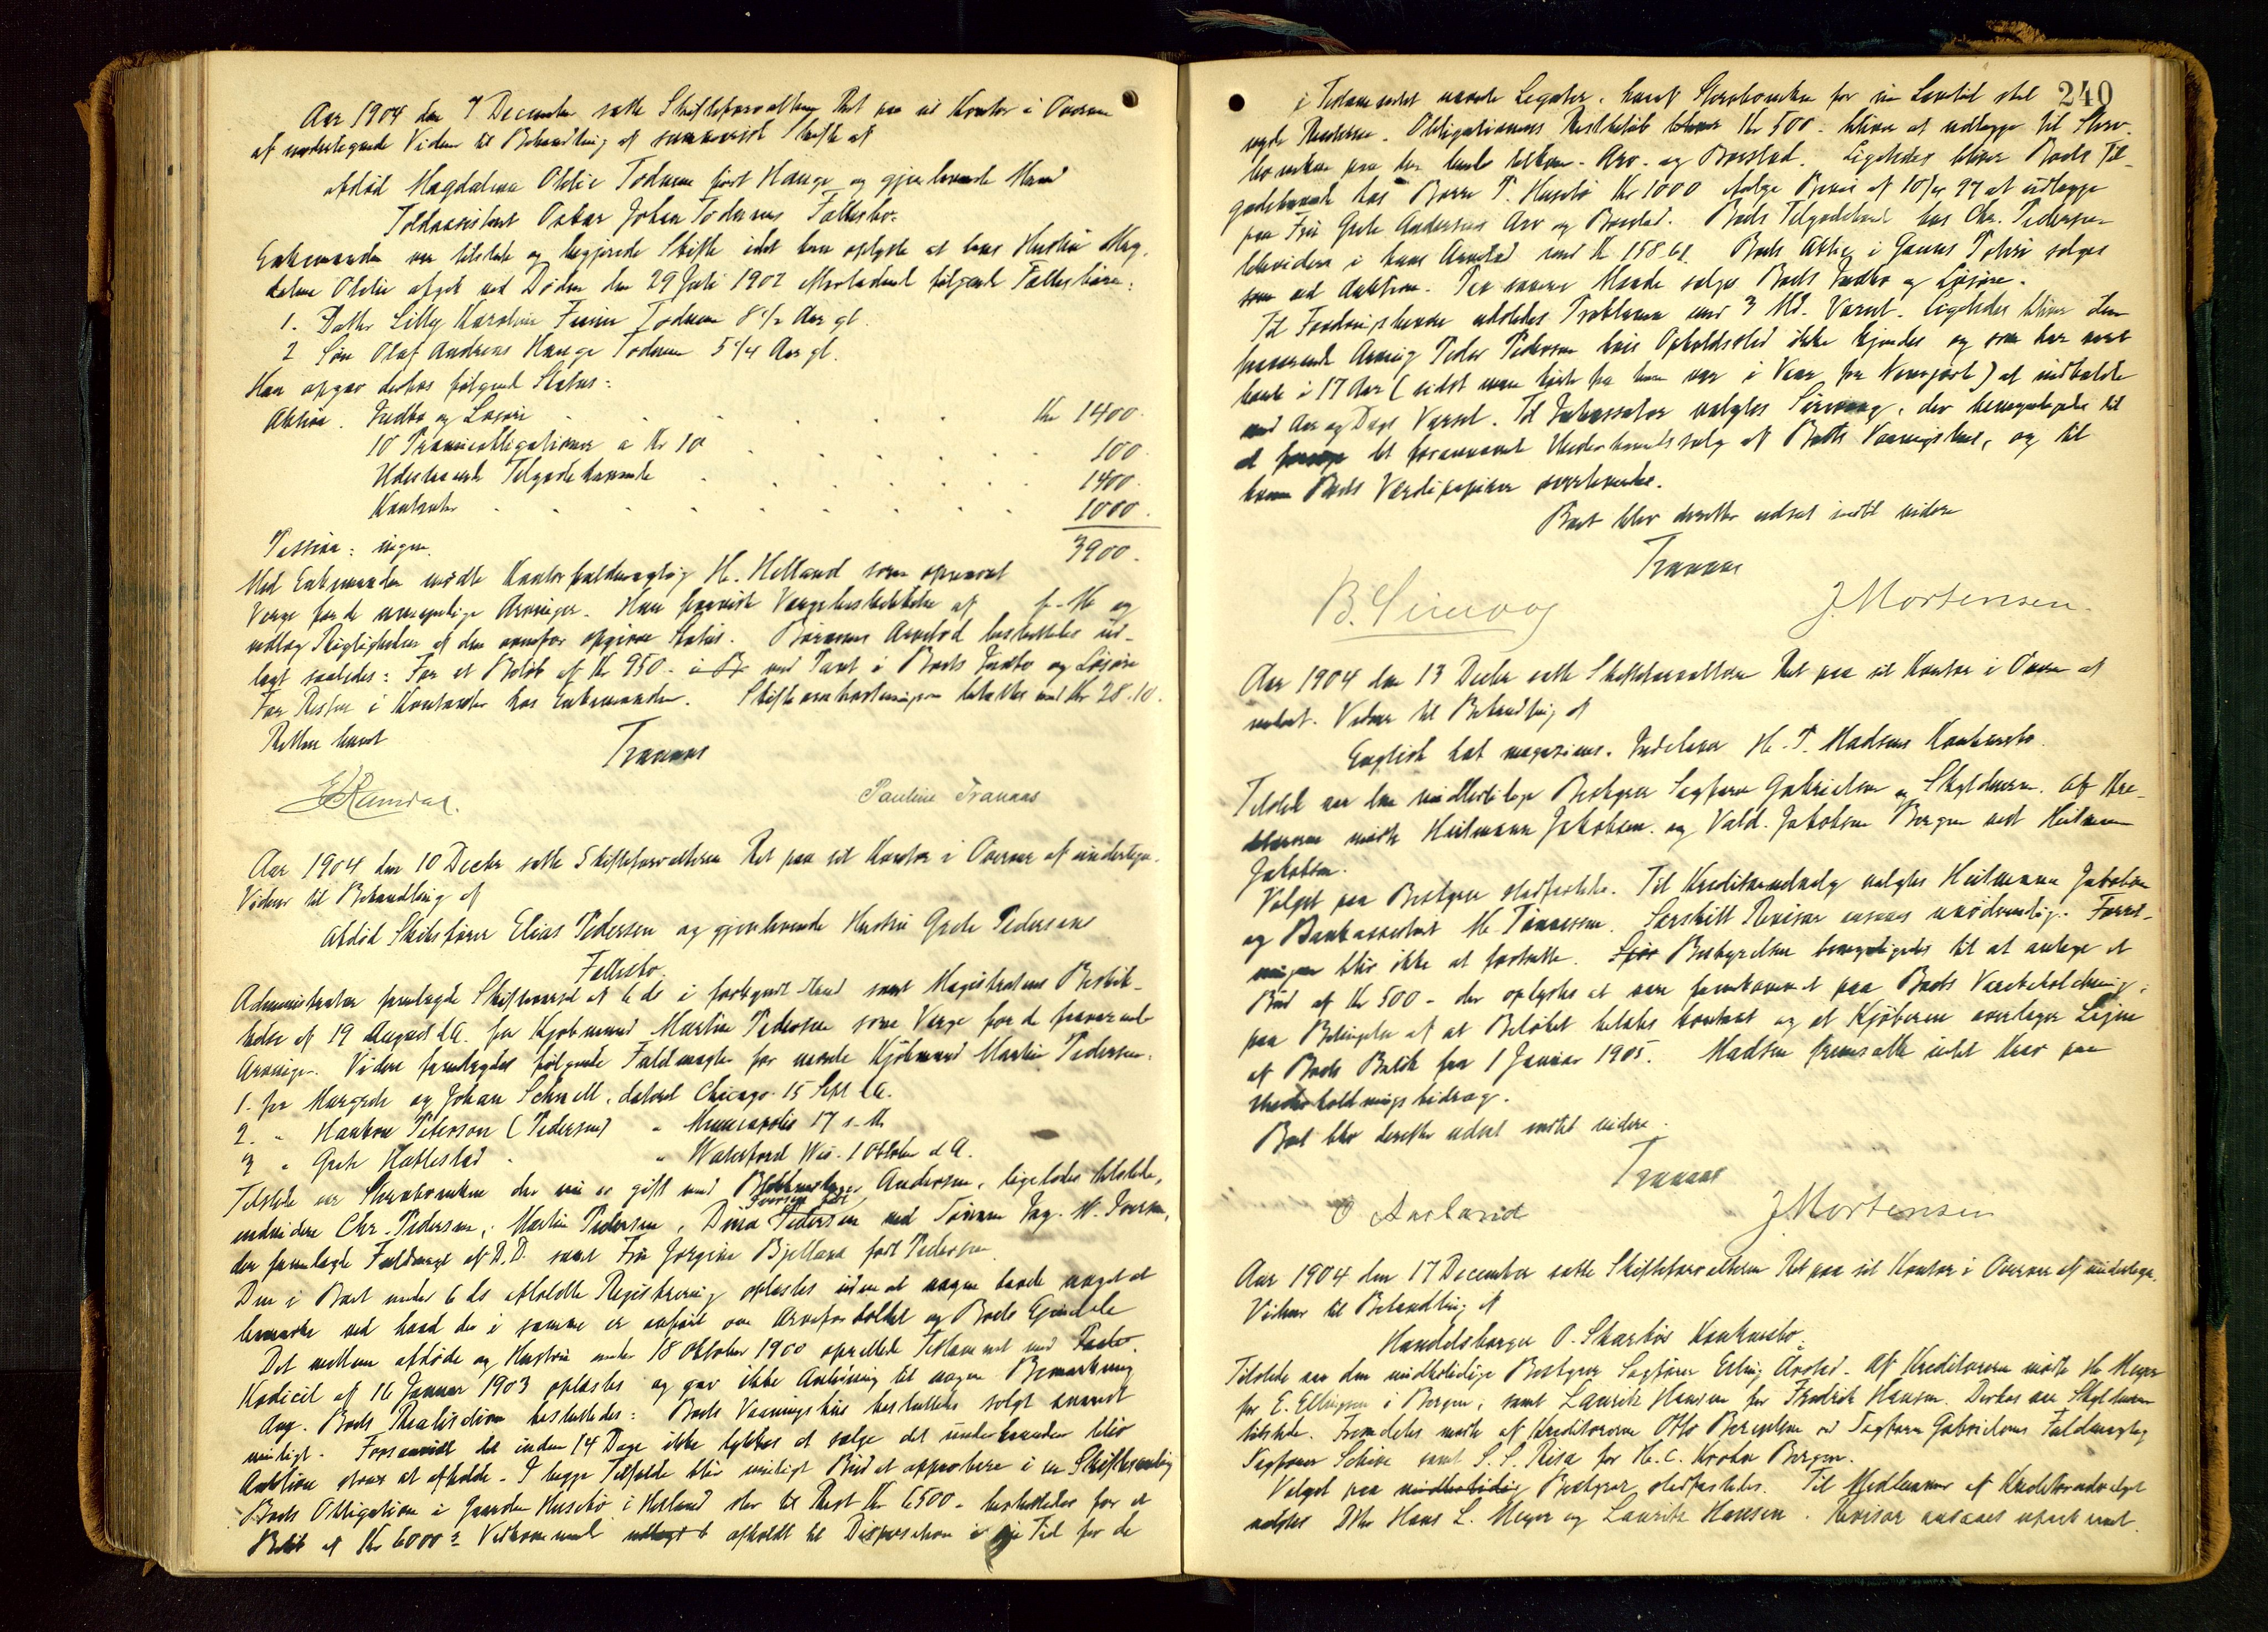 Aar 1904 den 7 December satte Skifteforvalteren Ret paa sit Kontor i Overvær
af undertegnede Vidner til Behandling af summarisk Skifte af
afdød Magdalena Otilie Todnem født Hauge og gjenlevende Mand
Toldassistent Oskar Johan Todnems Fællesbo.
Enkemanden var tilstede og begjærede Skifte idet han oplyste at hans Hustru Mag-
dalena Otilie afgik ved Døden den 29 Juli 1902 efterladende følgende Fællesbørn:
1. Datter Lilly Karoline Todnem 8 1/2 Aar gl.
2 Søn Olaf Andreas Hauge Todnem 5 1/4 Aar gl.
Han opgav derhos følgende Status:
Aktiva. Indbo og Løsøre Kr 1400.
10 Præmieobligationer a Kr 10 100.
Udestaaende Tilgodehavende 1400.
Kontanter 1000.
Passiva: ingen. 3900.
Med Enkemanden mødte Kontorfuldmægtig H. Helland som opnævnt
Verge for de umyndige Arvinger. Han fremviste Vergebeskikkelse af f. M. og
vedtog Rigtigheden af den ovenfor opgivne Status. Børnenes Arvelod besluttedes ud-
lagt saaledes: For et Beløb af Kr 950 - i Bo med Pant i Boets Indbo og Løsøre
For Resten i Kontanter hos Enkemanden. Skifteomkostningerne betaltes med Kr 28.10.
Retten hævet
Tranaas
Pauline Tranaas
Aar 1904 den 10 Decbr satte Skifteforvalteren Ret paa sit Kontor i Overvær af undertegn.
Vidner til Behandling af
Afdød Skibsfører Elias Pedersen og gjenlevende Hustru Grete Pedersens
Fællesbo.
Administrator fremlagde Skiftevarsel af 6 ds i forkyndt Stand samt Magistratens Beskik-
kelse af 19 August d.A. for Kjøbmand Martin Pedersen som Verge for de fraværende
Arvinger. Videre fremlagdes følgende Fuldmagter for nævnte Kjøbmand Martin Pedersen:
1. fra Margrete og Johan Schnell, dateret Chicago 15 Sept d.A.
2. " Haakon Peterson (Pedersen) " Minneapolis 17 s. M.
3 " Grete Hattestad " " Waterford Wis. 1 Oktober d.A.
Tilstede var Stervboenken der nu er gift med Andersen, ligeledes tilstede,
endvidere Chr. Pedersen, Martin Pedersen, Dina Pedersen
Iversen født
ved Iversen,
der fremlagde Fuldmagt af D.D. samt Fru Jørgine Bjelland født Pedersen.
Den i Boet under 6 ds afholdte Registrering oplæstes uden at nogen havde noget at
bemærke ved hvad der i samme er anført om Arveforholdet og Boets Eiendele
Det mellem afdøde og Hustru under 18 Oktober 1900 oprettede Testament med
Kodicil af 16 Januar 1903 oplæstes og gav ikke Anledning til nogen Bemærkning
Ang. Boets Realisation besluttedes: Boets Vaaningshus besluttedes solgt snarest
muligt. Forsaavidt det inden 14 Dage ikke lykkes at sælge det underhaanden blir
Auktion straks at afholde. I begge Tilfælde blir muligt Bud at approbere i en Skiftesamling
Boets Obligation i Gaarden Husebø i Hetland stor til Rest Kr 6500 - besluttedes for et
Beløb af Kr 6000 - Vedkommende udlagt afholdt til Disposition i sin Tid for de
240
i Testamentet nævnte Legater, hvoraf Stervboenken for sin Levetid skal
nyde Renterne. Obligationens Restbeløb Kr 500 - bliver at udlægge til Sterv-
boenken paa den hende tilkom. Arv- og Boeslod. Ligeledes bliver Boets Til-
godehavende hos Børre T. Husebø Kr 1000 ifølge Bevis af 10/4 97 at udlægge
paa Fru Grete Andersens Arv og Boeslod. Boets Tilgodehavende hos Chr. Pedersen
likvideres i hans Arvelod med Kr 158.61. Boets Aktie i sælges
som ved Auktion. Paa samme Maade sælges Boets Indbo og Løsøre.
Til Fordringshavere udstedes Proklama med 3 Md. Varsel. Ligeledes bliver den
fraværende Arving Peder Pedersen hvis Opholdssted ikke kjendes og som har været
borte i 17 Aar (sidst man hørte fra ham var i Vear fra Newyork) at indkalde
med Aar og Dags Varsel. Til Inkassator valgtes Sirevaag, der bemyndigedes til
at forsøge det forannævnte Underhaandssalg af Boets Vaaningshus, og til
ham Boets Værdipapirer overleveredes.
Boet blev derefter udsat indtil videre
Tranaas
B. Sirevaag
J. Mortensen.
Aar 1904 den 13 Decbr satte Skifteforvalteren Ret paa sit Kontor i Overvær af
undert. Vidner til Behandling af
English hat magazines. Indehaver H. T. Madsens Konkursbo.
Tilstede var den midlertidige Bestyrer Sagfører Gabrielsen og Skyldneren. Af Kre-
ditorerne mødte Heilmann Jakobsen og Vald. Jakobsen Bergen ved Heilmann
Jakobsen.
Valget paa Bestyrer stadfæstedes. Til Kreditorudvalg valgtes Heilmann Jakobsen
og Bankassistent M. Tønnessen. Særskilt Revisor ansaaes unødvendig. Forret-
ningen blir ikke at fortsætte. Bestyrelsen bemyndigedes til at antage et
Bud af Kr 500 - der oplystes at være fremkommet paa Boets Varebeholdning,
paa Betingelse af at Beløbet betales kontant og at Kjøberen overtager Leien
af Boets Butik fra 1 Januar 1905. Madsen fremsatte intet Krav paa
Underholdningsbidrag.
Boet blev derefter udsat indtil videre.
Tranaas
O Aarland
J. Mortensen
Aar 1904 den 17 December satte Skifteforvalteren Ret paa sit Kontor i Overvær af undertegn.
Vidner til Behandling af
Handelsborger O. Skarbøs Konkursbo.
Tilstede var den midlertidige Bestyrer Sagfører Erling Årstad. Af Kreditorerne mødte Hr Meyer
for E. Ellingsen i Bergen, samt Lauritz Hansen for Fredrik Hansen. Derhos var Skyldneren
tilstede. Fremdeles mødte af Kreditorerne Otto Berentsen ved Sagfører Gabrielsens Fuldmægtig
Sagfører Schive samt S. S. Risa for H. C. Krohn Bergen.
Valget paa midlertidig Bestyrer stadfæstedes. Til Medlemmer af Kreditorudvalget
valgtes DHr Hans L. Meyer og Lauritz Hansen. Revisor ansaaes ufornødent.